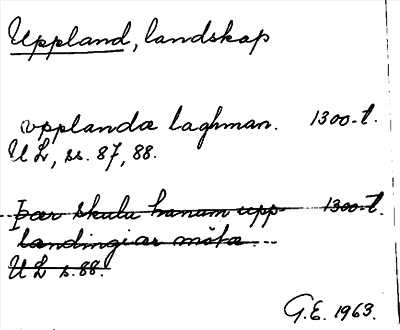 Uppland, landskap
vpplandæ laghman. 1300-t.
UL, ss. 87, 88.
Þær skulu hanum upp- 1300-t.
lændingiær møtæ...
UL s. 88.
G.E. 1963.